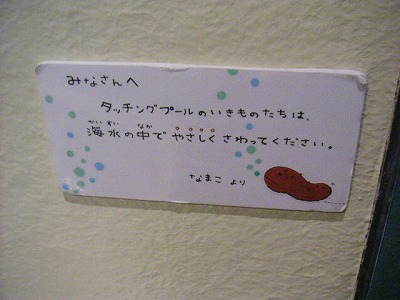 みなさんへ
タッチングプールのいきものたちは、
海水の中で やさしく さわってください。
なまこ より